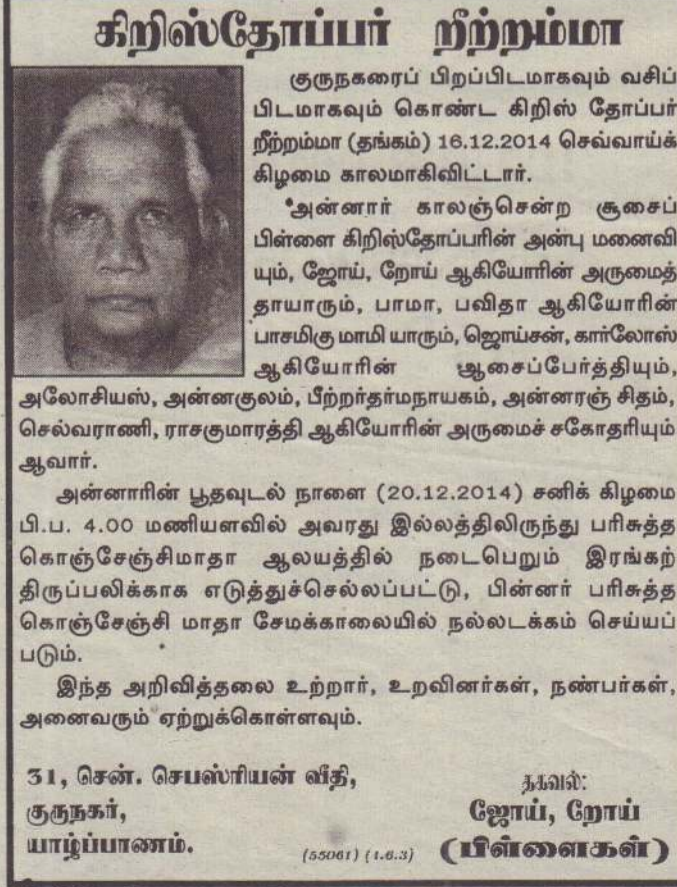 கிறிஸ்தோப்பர் றீற்றம்மா
குருநகரைப் பிறப்பிடமாகவும் வசிப்
பிடமாகவும் கொண்ட கிறிஸ் தோப்பர்
றீற்றம்மா (தங்கம்) 16.12.2014 செவ்வாய்க்
கிழமை காலமாகிவிட்டார்.
அன்னார் காலஞ்சென்ற சூசைப்
பிள்ளை கிறிஸ்தோப்பரின் அன்பு மனைவி
யும், ஜோய், றோய் ஆகியோரின் அருமைத்
தாயாரும், பாமா, பவிதா ஆகியோரின்
பாசமிகு மாமி யாரும், ஜொய்சன், கார்லோஸ்
ஆகியோரின் ஆசைப்பேர்த்தியும்,
அலோசியஸ், அன்னகுலம், பீற்றர்தர்மநாயகம், அன்னரஞ் சிதம்,
செல்வராணி, ராசகுமாரத்தி ஆகியோரின் அருமைச் சகோதரியும்
ஆவார்.
அன்னாரின் பூதவுடல் நாளை (20.12.2014) சனிக் கிழமை
பி.ப. 4.00 மணியளவில் அவரது இல்லத்திலிருந்து பரிசுத்த
கொஞ்சேஞ்சிமாதா ஆலயத்தில் நடைபெறும் இரங்கற்
திருப்பலிக்காக எடுத்துச்செல்லப்பட்டு, பின்னர் பரிசுத்த
கொஞ்சேஞ்சி மாதா சேமக்காலையில் நல்லடக்கம் செய்யப்
படும்.
இந்த அறிவித்தலை உற்றார், உறவினர்கள், நண்பர்கள்,
அனைவரும் ஏற்றுக்கொள்ளவும்.
31, சென். செபஸ்ரியன் வீதி,
குருநகர்,
யாழ்ப்பாணம்.
தகவல்:
ஜோய், றோய்
(பிள்ளைகள்)
(55061) (1.6.3)